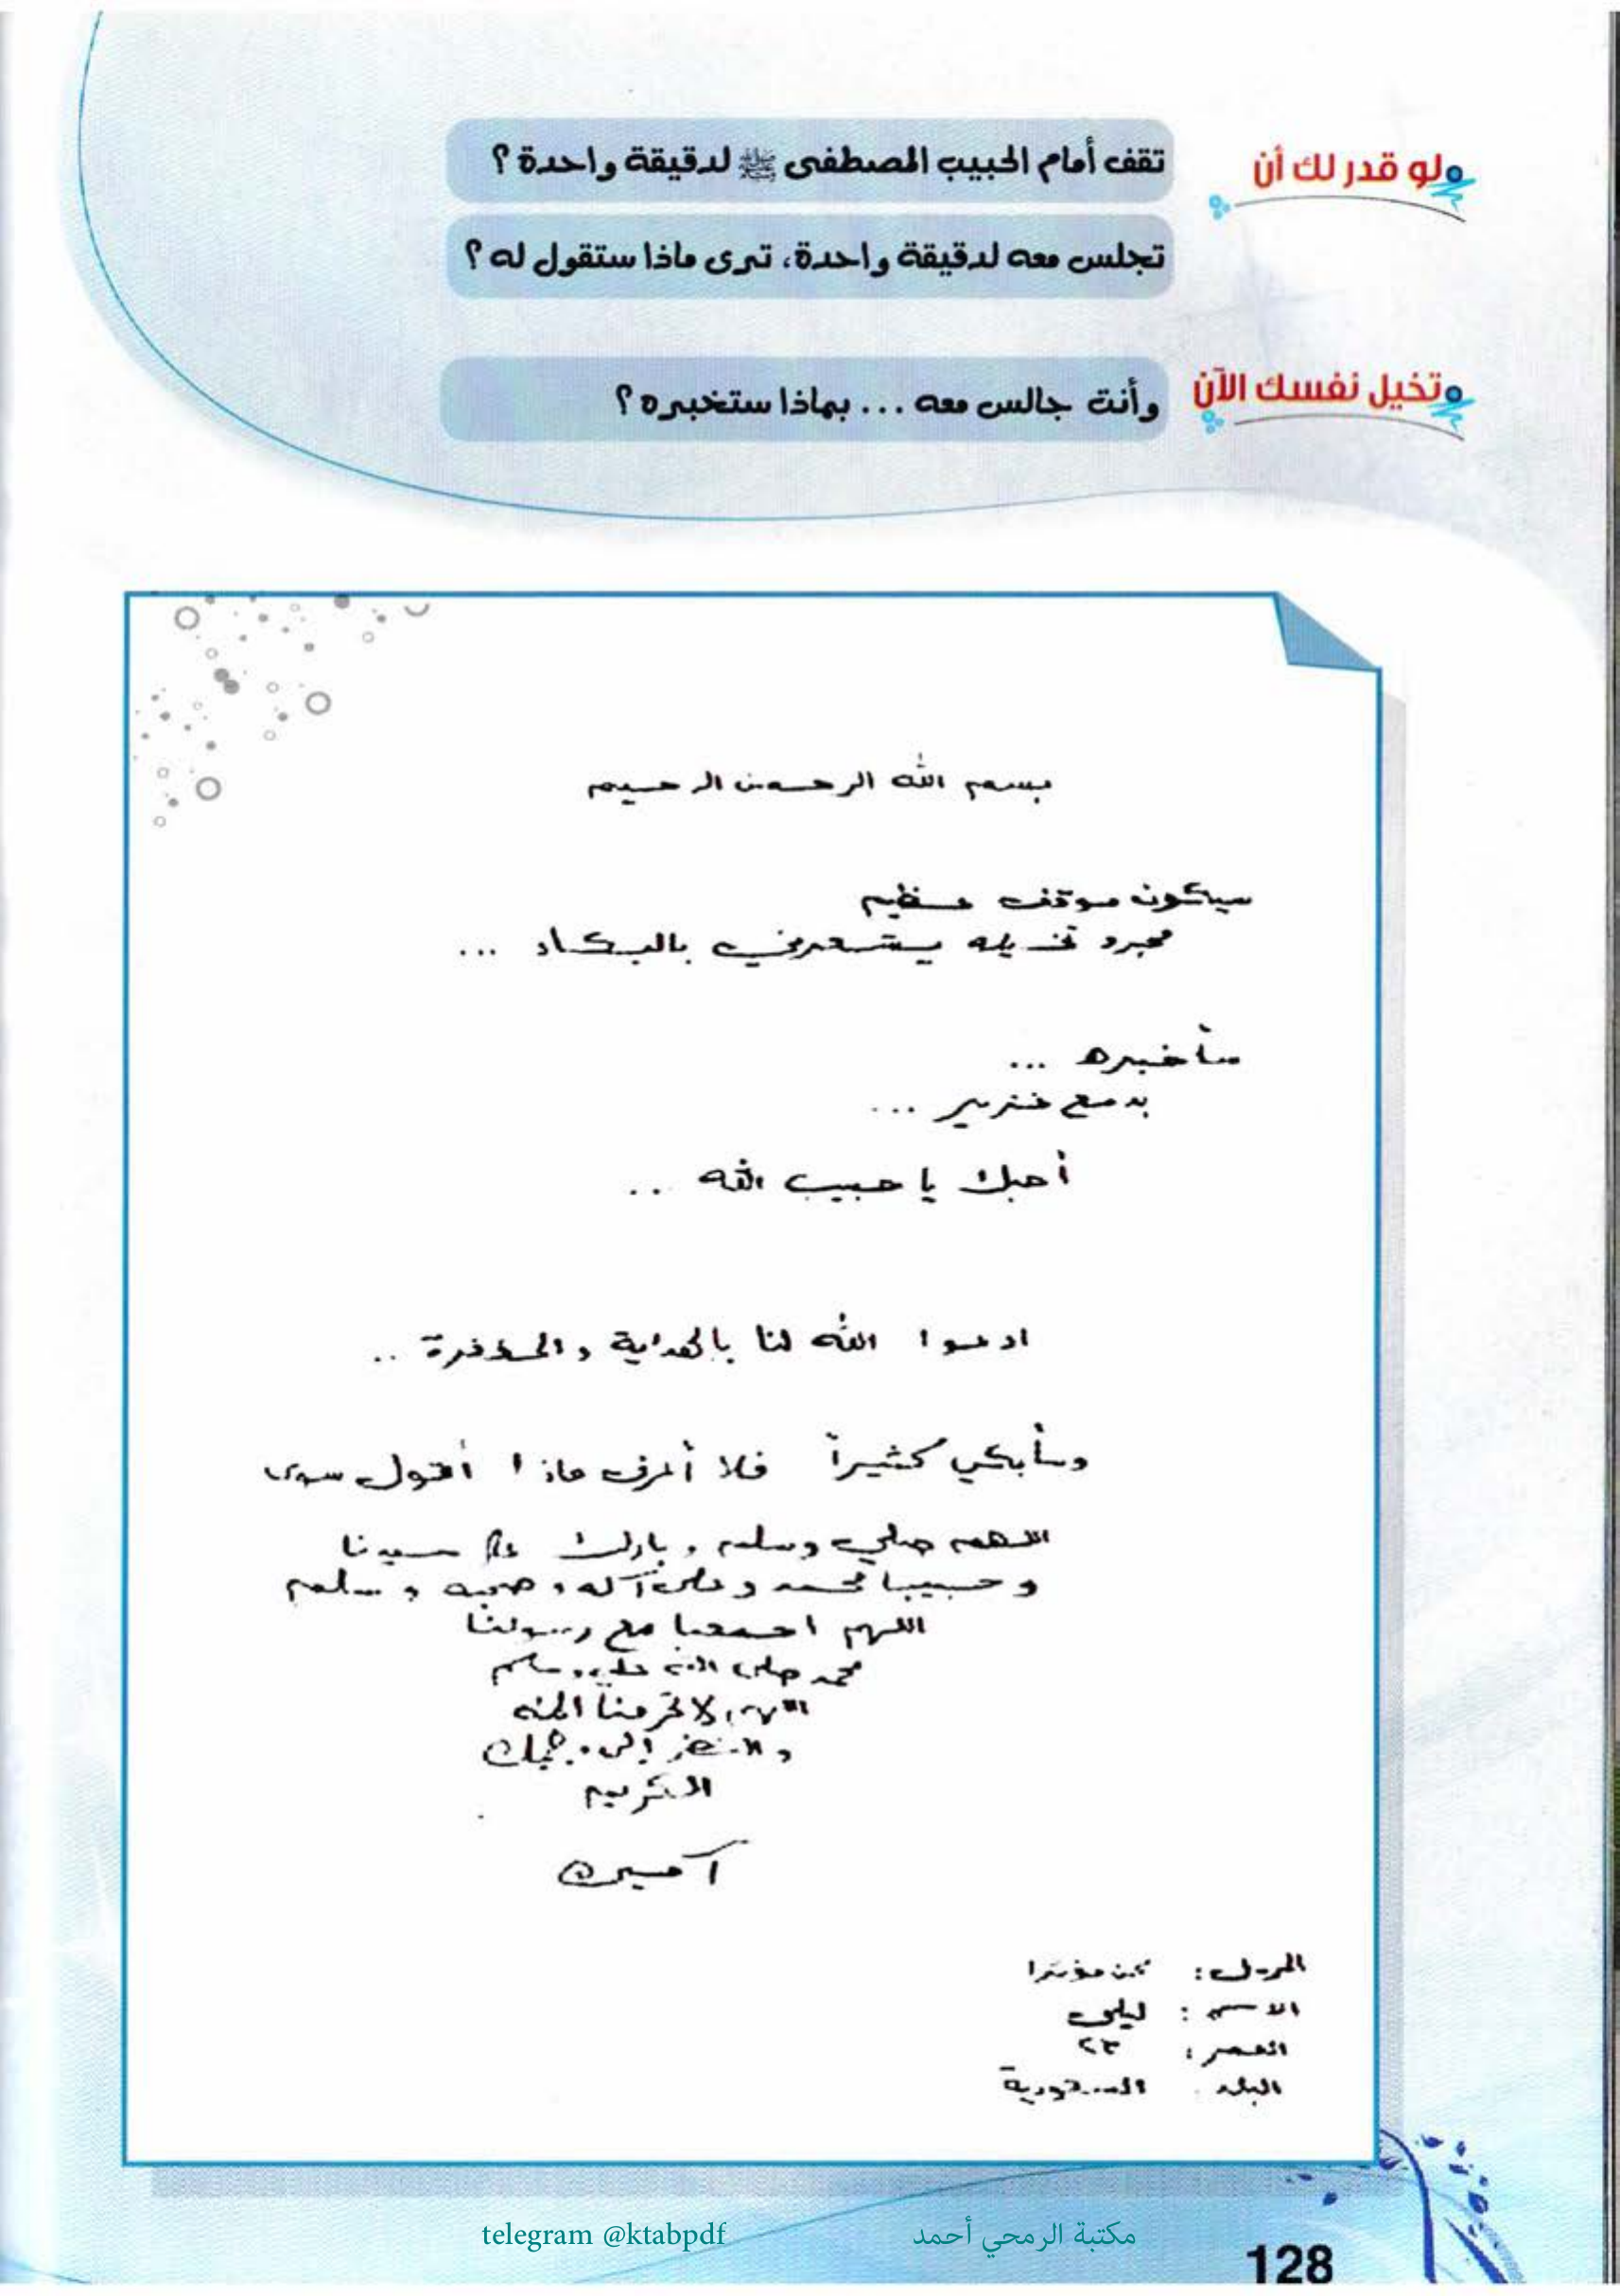 لو قدر لك أن
تقف أمام الحبيب المصطفى ﷺ لدقيقة واحدة ؟
تجلس معه لدقيقة واحدة، ترى ماذا ستقول له ؟
تخيل نفسك الآن
وأنت جالس معه ... بماذا ستخبره ؟
بسم الله الرحمن الرحيم
سيكون موقف عظيم
مجرد تخيله يشعرني بالبكاء ...
سأخبره ...
بدمع غزير ...
أحبك يا حبيب الله ..
ادعوا الله لنا بالهداية والمغفرة ..
وسأبكي كثيراً فلا أعرف ماذا أقول سوى
اللهم صلي وسلم وبارك على سيدنا
وحبيبنا محمد وعلى آله وصحبه وسلم
اللهم اجمعنا مع رسولنا
محمد صلى الله عليه وسلم
اللهم لا تحرمنا الجنه
والنظر إلى وجهك
الكريم
آمين
الاسم : ليلى
العمر : ٢٣
البلد السعودية
telegram @ktabpdf مكتبة الرمحي أحمد
128